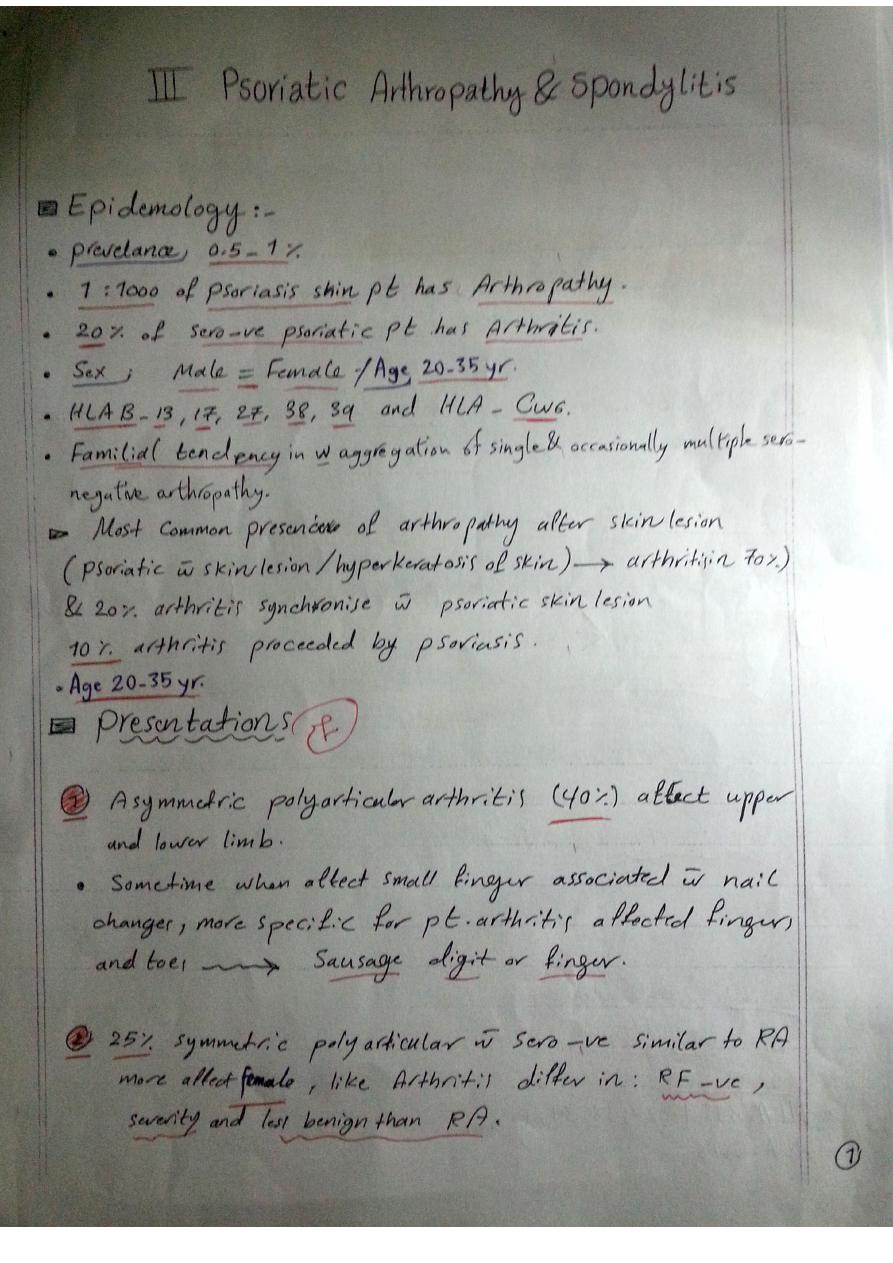 III Psoriatic Arthropathy & Spondylitis
Epidemology :-
• prevelance, 0.5 – 1 %
• 1 : 1000 of psoriasis skin pt has Arthropathy.
• 20% of sero-ve psoriatic pt has Arthritis.
• Sex ; Male = Female / Age 20-35 yr.
• HLA B-13, 17, 27, 38, 39 and HLA - Cw6.
• Familial tendency in w aggregation of single & occasionally multiple sero-
negative arthropathy.
Most common of arthropathy after skin lesion
(psoriatic w̄ skin lesion / hyperkeratosis of skin) → arthritis in 70%)
& 20% arthritis synchronise w̄ psoriatic skin lesion
10% arthritis proceeded by psoriasis.
• Age 20-35 yr.
Presentations
① Asymmetric polyarticular arthritis (40%) affect upper
and lower limb.
• Sometime when affect small finger associated w̄ nail
changes, more specific for pt. arthritis affected finger,
and toes → Sausage digit or finger.
② 25% symmetric polyarticular w̄ sero -ve similar to RA
more affect female, like Arthritis differ in : RF -ve,
severity and less benign than RA.
①